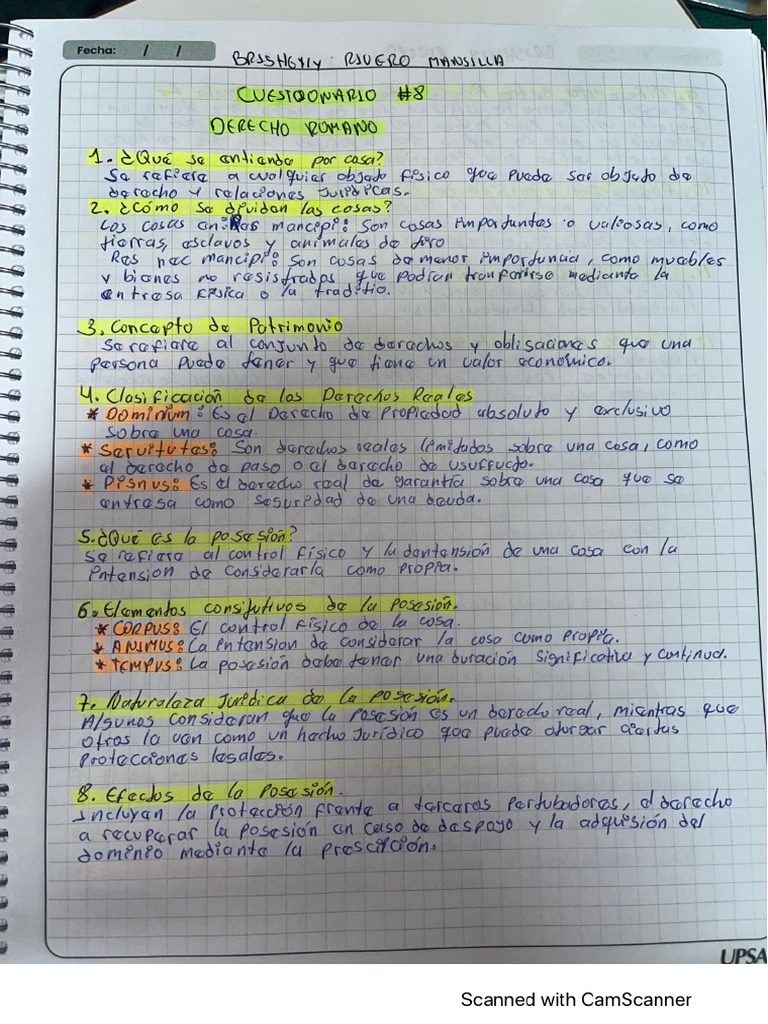 Fecha: / /
BRISHEYLY RIVERO MANSILLA
CUESTIONARIO #8
DERECHO ROMANO
1. ¿Qué se entiende por cosa?
Se refiere a cualquier objeto físico que puede ser objeto de
derecho y relaciones jurídicas.
2. ¿Cómo se dividen las cosas?
Los cosas mancipi: Son cosas importantes o valiosas, como
tierras, esclavos y animales de tiro
Res nec mancipi: Son cosas de menor importancia, como muebles
y bienes no registrados que podían tranferirse mediante la
entrega física o la traditio.
3. Concepto de Patrimonio
Se refiere al conjunto de derechos y obligaciones que una
persona puede tener y que tiene un valor económico.
4. Clasificación de los Derechos Reales
* Dominium: Es el Derecho de Propiedad absoluto y exclusivo
sobre una cosa.
* Servitutes: Son derechos reales limitados sobre una cosa, como
el derecho de paso o el derecho de usufructo.
* Pignus: Es el derecho real de garantía sobre una cosa que se
entrega como seguridad de una deuda.
5. ¿Qué es la posesión?
Se refiere al control físico y la dentensión de una cosa con la
intension de considerarla como propia.
6. Elementos consitutivos de la posesión.
* CORPUS: El control físico de la cosa.
* ANIMUS: La intension de considerar la cosa como propia.
* TEMPUS: La posesión debe tener una duración significativa y continua.
7. Naturaleza Jurídica de la posesión.
Algunos consideran que la posesión es un derecho real, mientras que
otros la ven como un hecho jurídico que puede otorgar ciertas
protecciones legales.
8. Efectos de la Posesión.
Incluyen la protección frente a terceros pertubadores, el derecho
a recuperar la posesión en caso de despojo y la adquisión del
dominio mediante la prescipción.
UPSA
Scanned with CamScanner